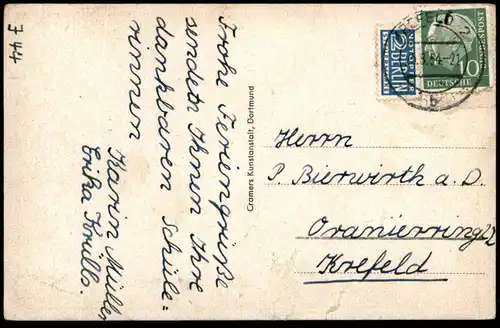 J 44
Frohe Feriengrüße
sendet Ihnen Ihre
dankbaren Schüle=
rinnen
Karin Müller
Erika Krülls.
Cramers Kunstanstalt, Dortmund
NOTOPFER
2 BERLIN
STEUERMARKE
DEUTSCHE
BUNDESPOST
10
54-21
b
Herrn
P Bierwirth a.D.
Oranierring 12
Krefeld